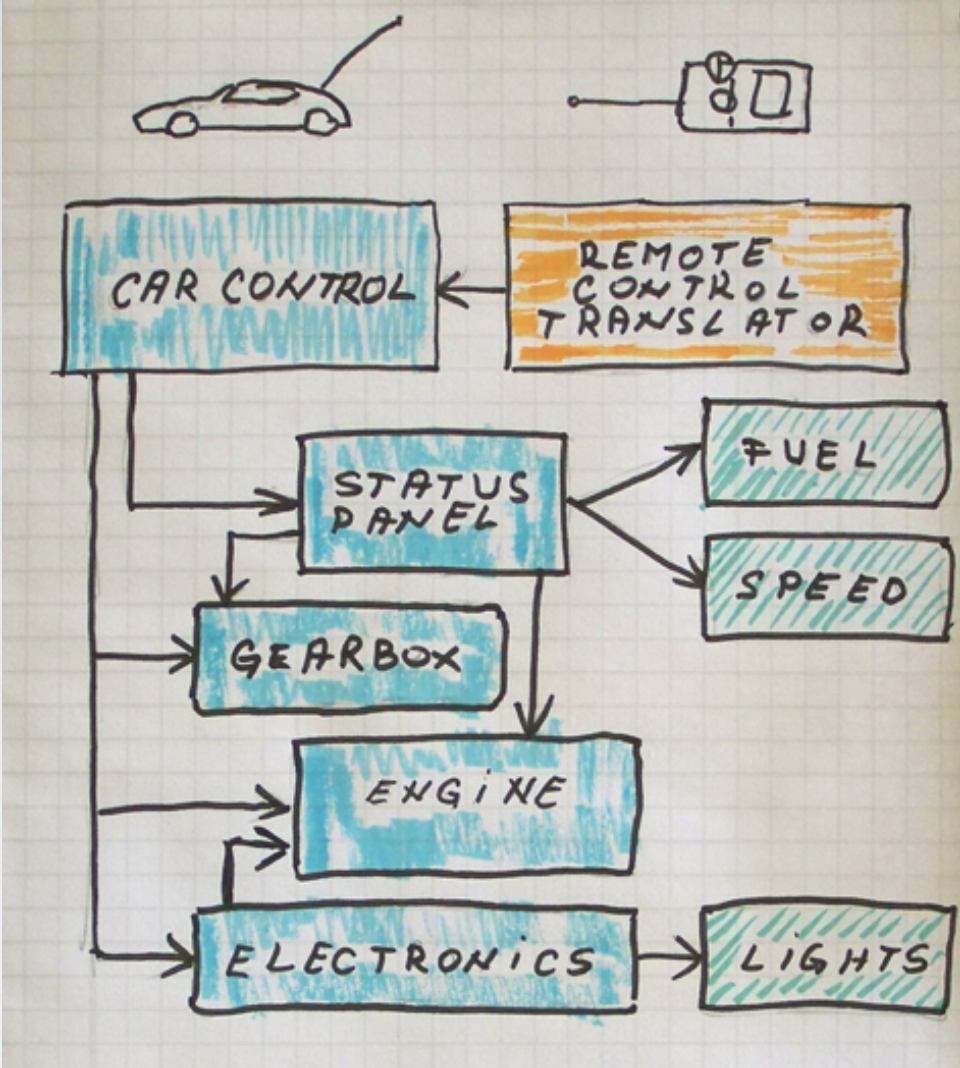 CAR CONTROL
REMOTE
CONTROL
TRANSLATOR
STATUS
PANEL
FUEL
SPEED
GEARBOX
ENGiNE
ELECTRONiCS
LiGHTS